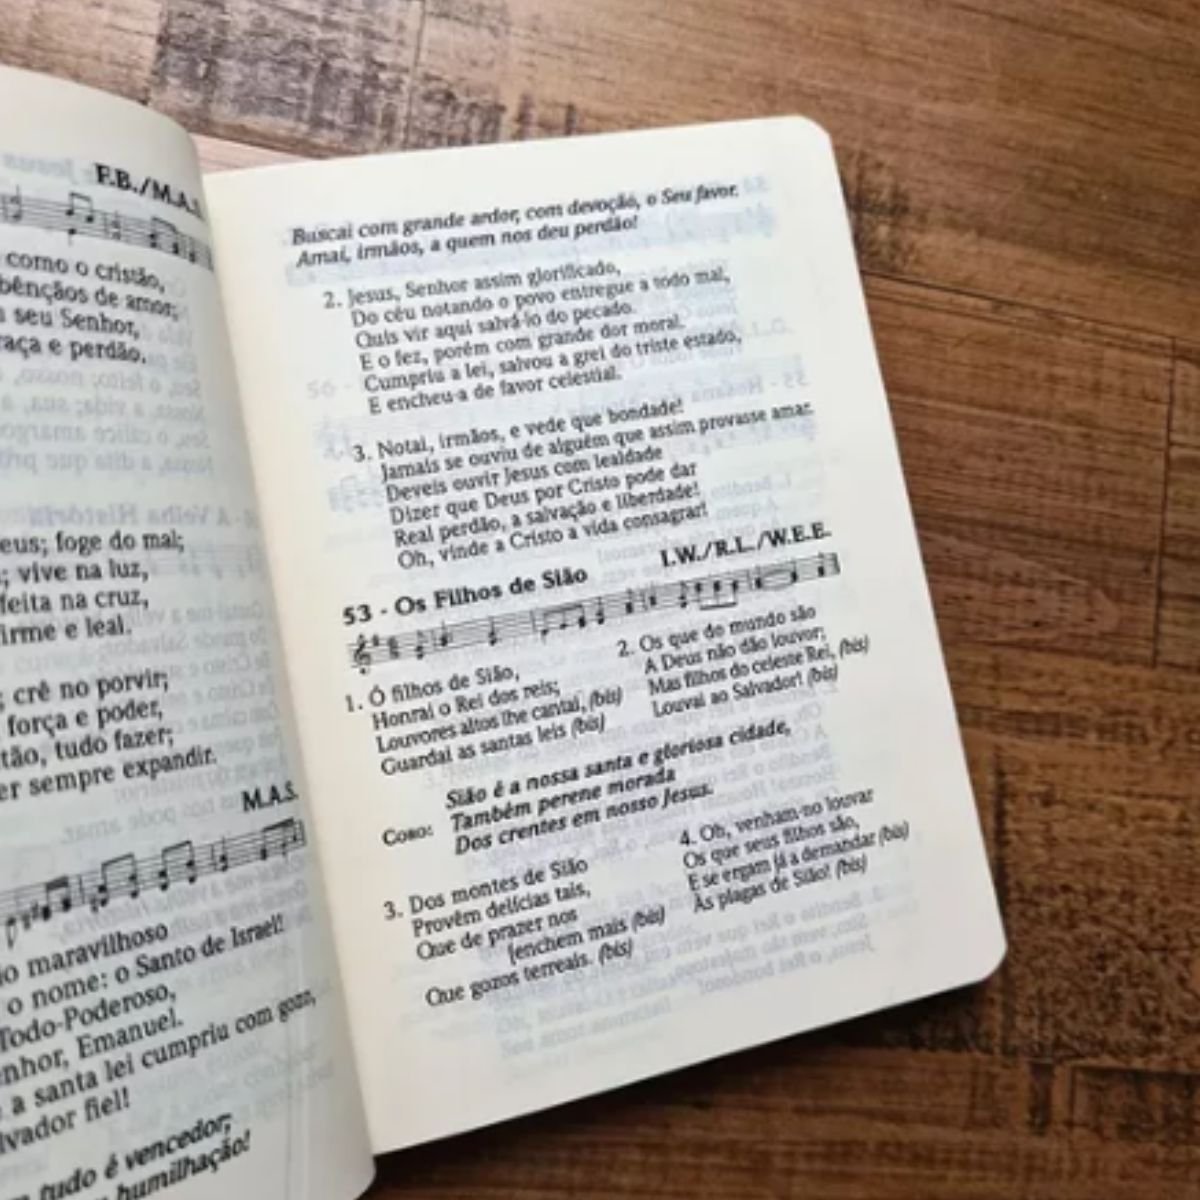 F.B./M.A.S.
como o cristão,
bênçãos de amor;
seu Senhor,
raça e perdão.
eus; foge do mal;
; vive na luz,
feita na cruz,
irme e leal.
; crê no porvir;
força e poder,
tão, tudo fazer;
er sempre expandir.
M.A.S.
io maravilhoso
o nome: o Santo de Israel!
Todo-Poderoso,
nhor, Emanuel.
a santa lei cumpriu com gozo,
lvador fiel!
tudo é vencedor;
humilhação!
Buscai com grande ardor, com devoção, o Seu favor.
Amai, irmãos, a quem nos deu perdão!
2. Jesus, Senhor assim glorificado,
Do céu notando o povo entregue a todo mal,
Quis vir aqui salvá-lo do pecado.
E o fez, porém com grande dor moral.
Cumpriu a lei, salvou a grei do triste estado,
E encheu-a de favor celestial.
3. Notai, irmãos, e vede que bondade!
Jamais se ouviu de alguém que assim provasse amar.
Deveis ouvir Jesus com lealdade
Dizer que Deus por Cristo pode dar
Real perdão, a salvação e liberdade!
Oh, vinde a Cristo a vida consagrar!
53 - Os Filhos de Sião I.W./R.L./W.E.E.
1. Ó filhos de Sião,
Honrai o Rei dos reis;
Louvores altos lhe cantai, (bis)
Guardai as santas leis (bis)
2. Os que do mundo são
A Deus não dão louvor;
Mas filhos do celeste Rei, (bis)
Louvai ao Salvador! (bis)
Sião é a nossa santa e gloriosa cidade,
Coro: Também perene morada
Dos crentes em nosso Jesus.
3. Dos montes de Sião
Provêm delícias tais,
Que de prazer nos
[enchem mais (bis)
Que gozos terreais. (bis)
4. Oh, venham-no louvar
Os que seus filhos são,
E se ergam já a demandar (bis)
As plagas de Sião! (bis)